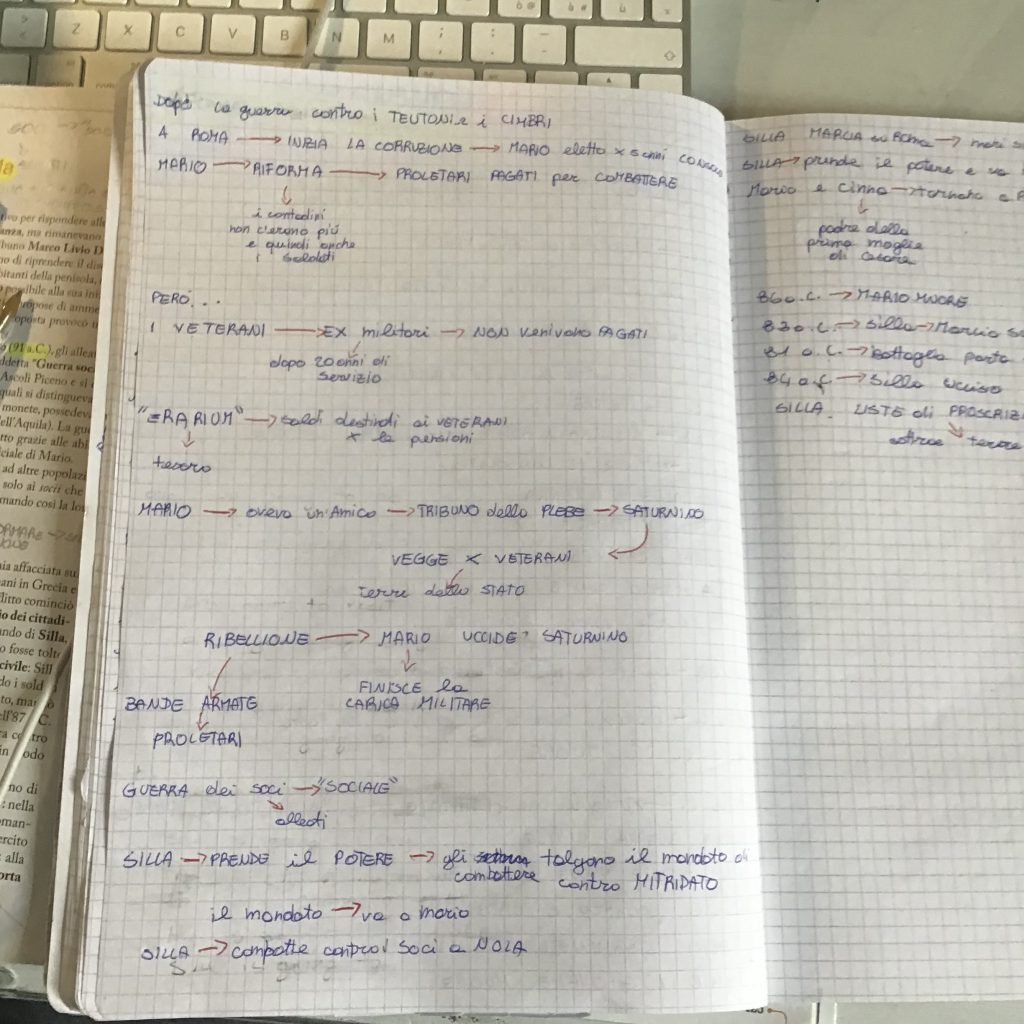 Z X C V B N M
DOPO la guerra contro i TEUTONI e i CIMBRI
A ROMA → INIZIA LA CORRUZIONE → MARIO eletto x 5 anni CONSOLE
MARIO → RIFORMA → PROLETARI PAGATI per COMBATTERE
i contadini
non c'erano più
e quindi anche
i soldati
PERÒ...
I VETERANI → EX militari → NON venivano PAGATI
dopo 20 anni di
servizio
"ERARIUM" → soldi destinati ai VETERANI
x le pensioni
tesoro
MARIO → aveva un'Amico → TRIBUNO della PLEBE → SATURNINO
LEGGE x VETERANI
terre dello STATO
RIBELLIONE → MARIO UCCIDE SATURNINO
FINISCE la
CARICA MILITARE
BANDE ARMATE
PROLETARI
GUERRA dei soci → "SOCIALE"
alleati
SILLA → PRENDE il POTERE → gli tolgono il mandato di
combattere contro MITRIDATO
il mandato → va a mario
SILLA → combatte contro i soci a NOLA
SILLA MARCIA su ROMA →
SILLA → prende il potere e va
Mario e Cinna → tornano a
padre della
prima moglie
di Cesare
86 a.C. → MARIO MUORE
83 a.C. → Silla → Marcia
81 a.C. → battaglia porta
84 a.C → Silla ucciso
SILLA LISTE di PROSCRIZI
terrore
18
tivo per rispondere alle
anza, ma rimanevano
ibuno Marco Livio D
no di riprendere il dis
bitanti della penisola,
possibile alla sua ini
opose di amme
oposta provocò u
(91 a.C.), gli allea
ddetta "Guerra soc
Ascoli Piceno e si
quali si distingueva
monete, possedeva
ell'Aquila). La gu
tto grazie alle abi
ciale di Mario.
ad altre popolaz
solo ai socii che
mando così la lo
nia affacciata su
ani in Grecia e
flitto cominciò
io dei cittadi-
ndo di Silla,
o fosse tolt
civile: Sill
do i sold
to, ma
ell'87 C.
ra co tro
in odo
no di
: nella
oman-
ercito
alla
orta